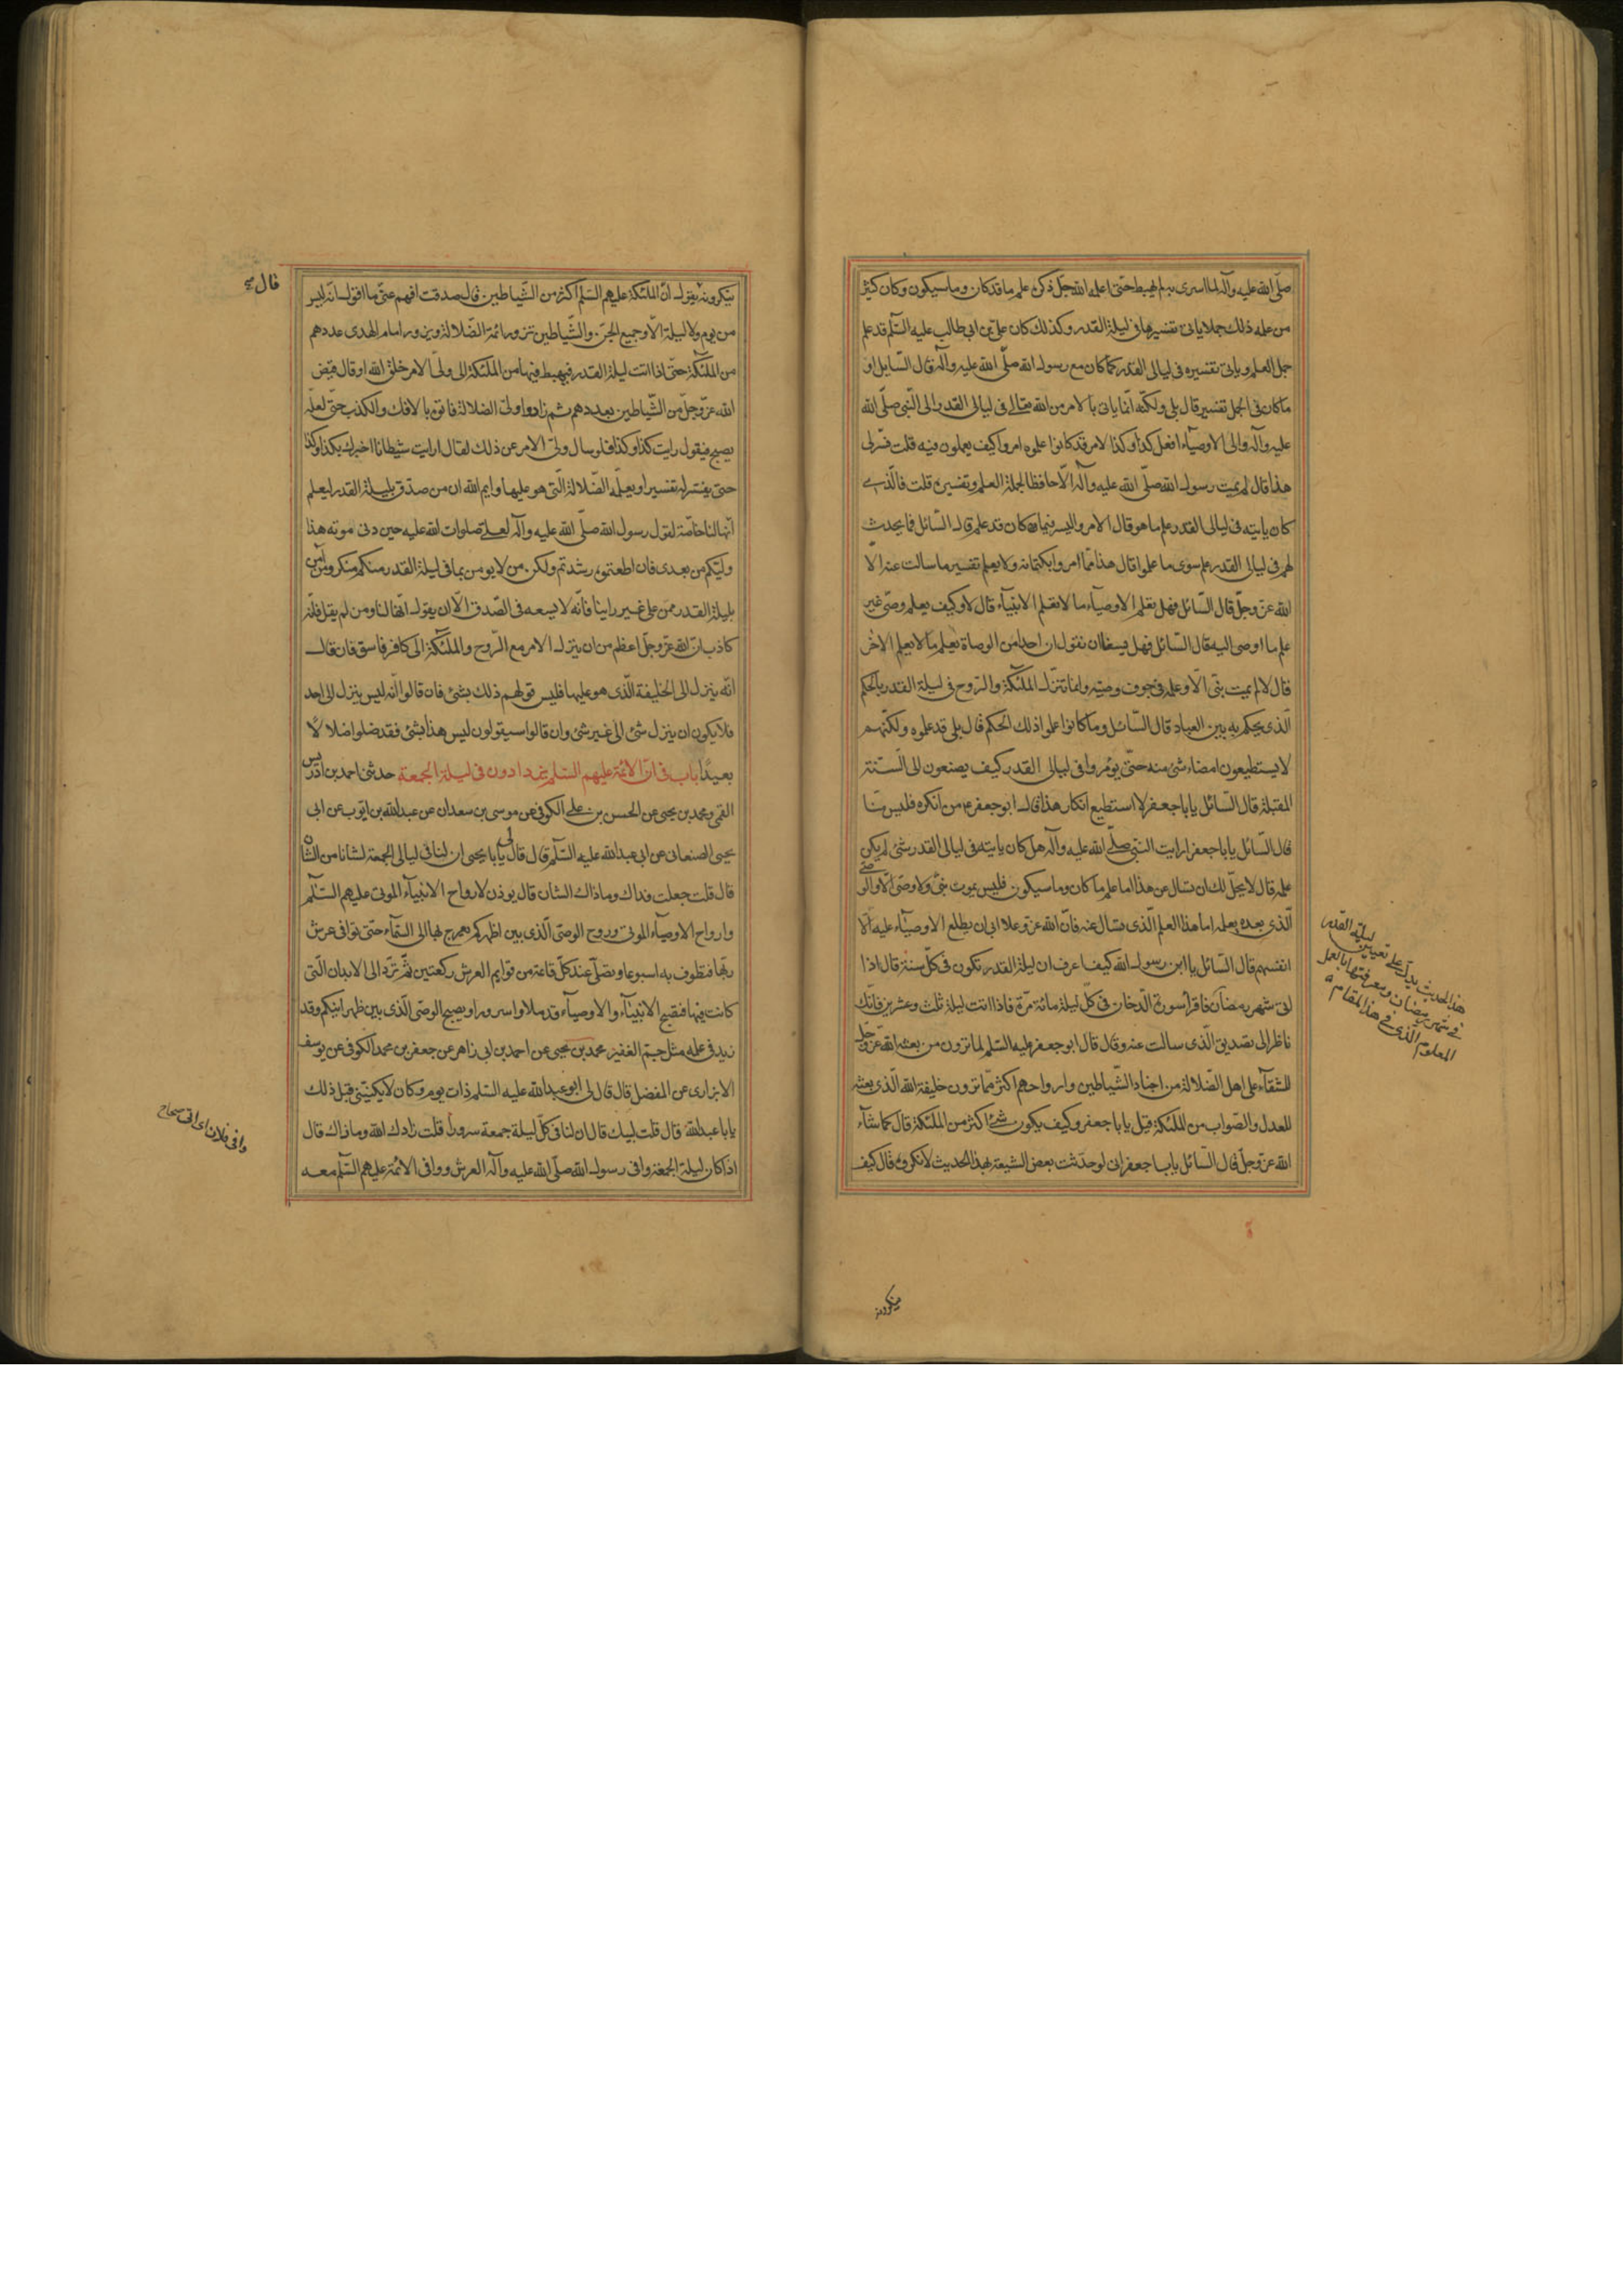 صلّى الله عليه وآله لما اسرى به لم يهبط حتى اعلمه الله جلّ ذكره علم ما قد كان وما سيكون وكان كثير
من علمه ذلك جملا ياتى تفسيرها فى ليلة القدر وكذلك كان علىّ بن ابى طالب عليه السّلم قد علم
جمل العلم وياتى تفسيره فى ليالى القدر كما كان مع رسول الله صلّى الله عليه وآله قال السّايل او
ما كان فى الجمل تفسير قال بلى ولكنّه انّما ياتى بالامر من الله تعالى فى ليالى القدر الى النّبى صلّى الله
عليه وآله والى الاوصيآء افعل كذا وكذا لامر قد كانوا علموه امروا كيف يعملون فيه قلت فسّر لى
هذا قال لم يمت رسول الله صلّى الله عليه وآله الّا حافظا لجملة العلم وتفسيره قلت فالّذى
كان ياتيه فى ليالى القدر علم ما هو قال الامر واليسر فيما كان قد علم قال السّائل فما يحدث
لهم فى ليالى القدر علم سوى ما علموا قال هذا ممّا امروا بكتمانه ولا يعلم تفسير ما سالت عنه الّا
الله عزّ وجلّ قال السّائل فهل يعلم الاوصيآء ما لا يعلم الانبيآء قال لا وكيف يعلم وصىّ غير
علم ما اوصى اليه قال السّائل فهل يسعنا ان نقول ان احدا من الوصاة يعلم ما لا يعلم الاخر
قال لا لم يمت نبىّ الّا وعلمه فى جوف وصيّه وانما تنزّل الملئكة والرّوح فى ليلة القدر بالحكم
الّذى يحكم به بين العباد قال السّائل وما كانوا علموا ذلك الحكم قال بلى قد علموه ولكنّهم
لا يستطيعون امضاء شئ منه حتّى يؤمروا فى ليالى القدر كيف يصنعون الى السّنة
المقبلة قال السّائل يا با جعفر لا استطيع انكار هذا قال ابو جعفر ع من انكره فليس منّا
قال السّائل يا با جعفر ارايت النّبى صلّى الله عليه وآله هل كان ياتيه فى ليالى القدر شئ لم يكن
علمه قال لا يحلّ لك ان تسال عن هذا اما علم ما كان وما سيكون فليس يموت نبىّ ولا وصىّ الّا والوصىّ
الّذى بعده يعلمه اما هذا العلم الّذى تسال عنه فانّ الله عزّ وعلا ابى ان يطلع الاوصيآء عليه الّا
انفسهم قال السّائل يا ابن رسول الله كيف اعرف ان ليلة القدر تكون فى كلّ سنة قال اذا
اتى شهر رمضان فاقرأ سورة الدّخان فى كلّ ليلة مائة مرّة فاذا اتت ليلة ثلث وعشرين فانّك
ناظر الى تصديق الّذى سالت عنه وقال قال ابو جعفر عليه السّلم لما تزون من بعثه الله عزّ وجلّ
للشقآء على اهل الضّلالة من اجناد الشّياطين وارواحهم اكثر ممّا تزون خليفة الله الّذى بعثه
للعدل والصّواب من الملئكة قيل يا با جعفر وكيف يكون شئ اكثر من الملئكة قال كما شآء
الله عزّ وجلّ قال السّائل يا با جعفر انى لو حدّثت بعض الشيعة بهذا الحديث لانكروه قال كيف
هذا الحديث يدلّ على تعيين ليلة القدر
فى شهر رمضان ومعرفتها بالعمل
المعلوم الّذى فى هذا المقام
ينكرونه
ينكرونه يقول انّ الملئكة عليهم السّلم اكثر من الشّياطين قال صدقت افهم عنّى ما اقول انّه ليس
من يوم ولا ليلة الّا وجميع الجنّ والشّياطين تزور ائمة الضّلالة ويزور امام الهدى عددهم
من الملئكة حتّى اذا اتت ليلة القدر فيهبط فيها من الملئكة الى ولىّ الامر خلق الله او قال قيّض
الله عزّ وجلّ من الشّياطين بعددهم ثم زاروا ولىّ الضلالة فاتوه بالافك والكذب حتّى لعلّه
يصبح فيقول رايت كذا وكذا فلو سال ولىّ الامر عن ذلك لقال ارايت شيطانا اخبرك بكذا وكذا
حتى يفسّر له تفسيرا ويعلّمه الضّلالة الّتى هو عليها وايم الله ان من صدّق بليلة القدر ليعلم
انّها لنا خاصّة لقول رسول الله صلّى الله عليه وآله لعلى صلوات الله عليه حين دنى موته هذا
وليّكم من بعدى فان اطعتموه رشدتم ولكن من لا يومن بما فى ليلة القدر منكم منكر ومن آمن
بليلة القدر ممّن على غير راينا فانّه لا يسعه فى الصّدق الّا ان يقول انّها لنا ومن لم يقل فانّه
كاذب انّ الله عزّ وجلّ اعظم من ان ينزل الامر مع الرّوح والملئكة الى كافر فاسق فان قال
انّه ينزل الى الخليفة الّذى هو عليها فليس قولهم ذلك بشئ فان قالوا انّه ليس ينزل الى احد
فلا يكون ان ينزل شئ الى غير شئ وان قالوا سيقولون ليس هذا بشئ فقد ضلوا ضلالا
بعيدًا باب فى انّ الائمّة عليهم السّلم يزدادون فى ليلة الجمعة حدثنى احمد بن ادريس
القمى ومحمد بن يحيى عن الحسن بن على الكوفى عن موسى بن سعدان عن عبد الله بن ايّوب عن ابى
يحيى الصنعانى عن ابى عبد الله عليه السّلم قال قال لى يا با يحيى ان لنا فى ليالى الجمعة لشانا من الشان
قال قلت جعلت فداك وما ذاك الشان قال يوذن لارواح الانبيآء الموتى عليهم السّلم
وارواح الاوصيآء الموتى وروح الوصىّ الّذى بين اظهركم يعرج بها الى السّمآء حتّى توافى عرش
ربّها فتطوف به اسبوعا وتصلّى عند كلّ قاعة من قوايم العرش ركعتين ثمّ تردّ الى الابدان الّتى
كانت فيها فتصبح الانبيآء والاوصيآء قد ملاوا سرورا ويصبح الوصىّ الّذى بين ظهرانيكم وقد
زيد فى علمه مثل جمّ الغفير محمد بن يحيى عن احمد بن ابى زاهر عن جعفر بن محمد الكوفى عن يوسف
الابزارى عن المفضل قال قال لى ابو عبد الله عليه السّلم ذات يوم وكان لا يكنّينى قبل ذلك
يا با عبد الله قال قلت لبيك قال ان لنا فى كلّ ليلة جمعة سرورا قلت زادك الله وما ذاك قال
اذا كان ليلة الجمعة وافى رسول الله صلّى الله عليه وآله العرش ووافى الائمّة عليهم السّلم معه
قال
وافى فلان اى اتى صحاح